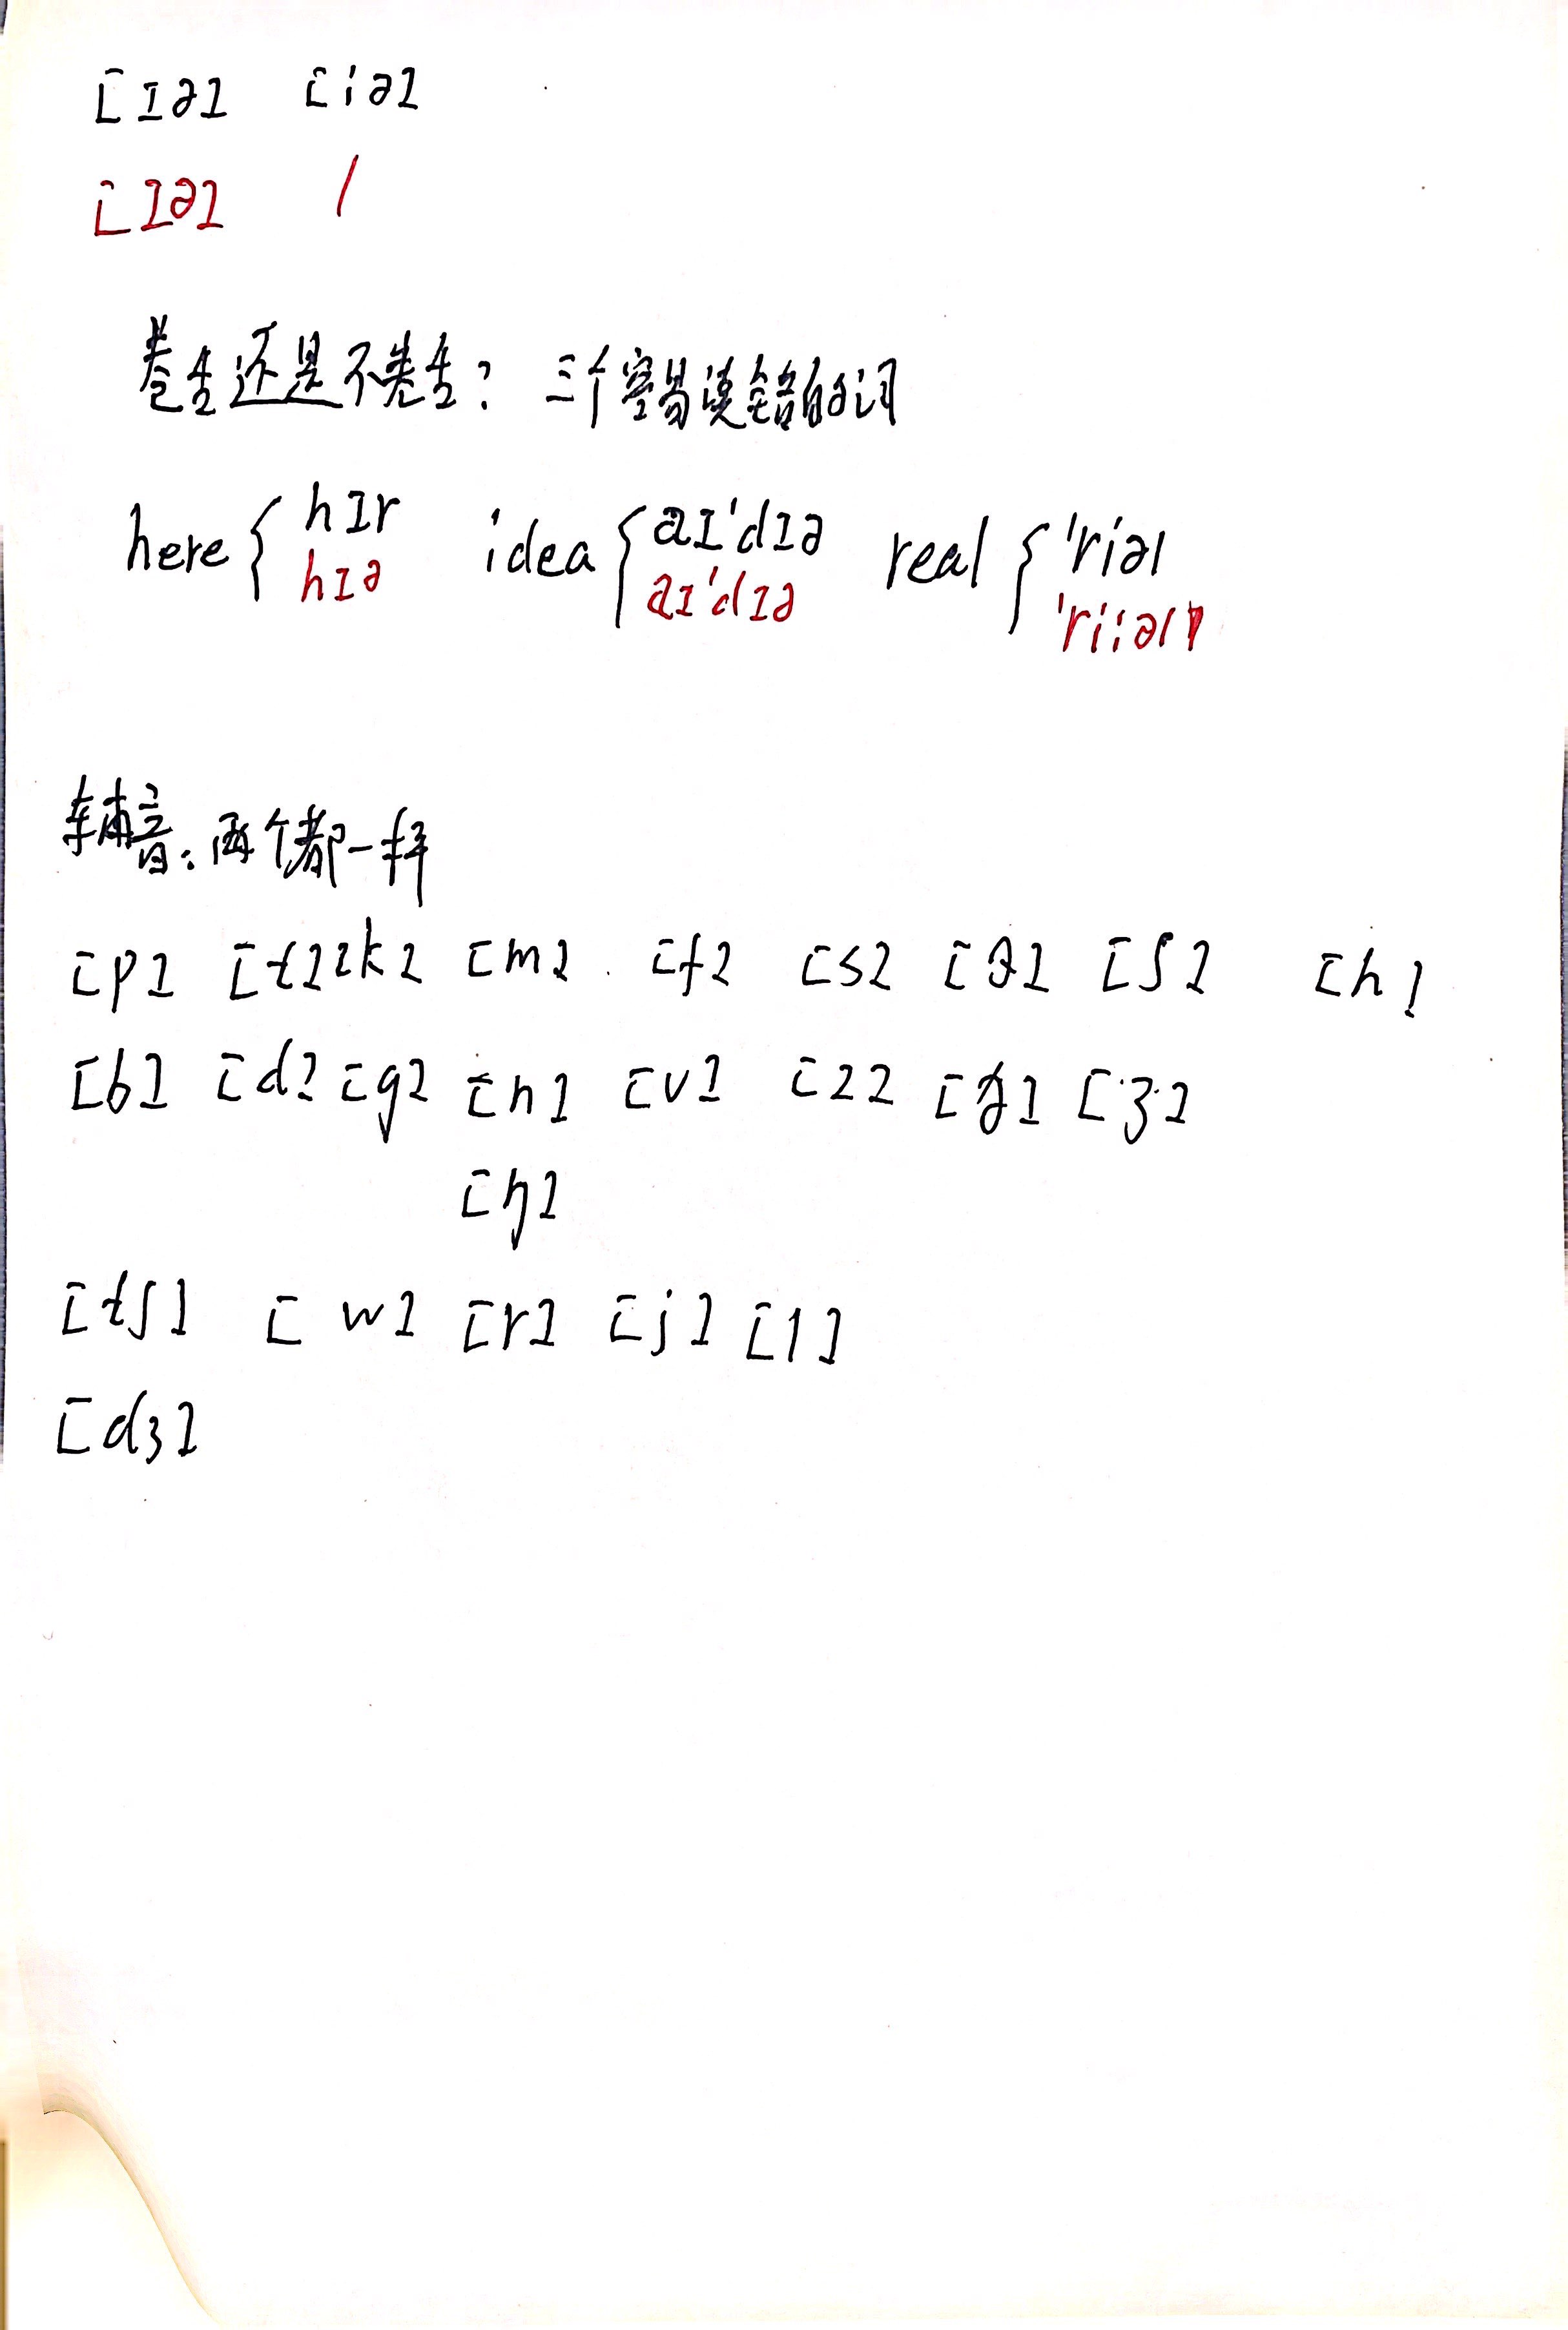 [ɪə] [iə]
[ɪə] /
卷舌还是不卷舌? 三个容易读错的词
here { hɪr idea { aɪ'dɪə real { 'riəl
hɪə aɪ'dɪə 'riːəl
辅音:两个都一样
[p] [t] [k] [m] [f] [s] [θ] [ʃ] [h]
[b] [d] [g] [n] [v] [z] [ð] [ʒ]
[ŋ]
[tʃ] [w] [r] [j] [l]
[dʒ]